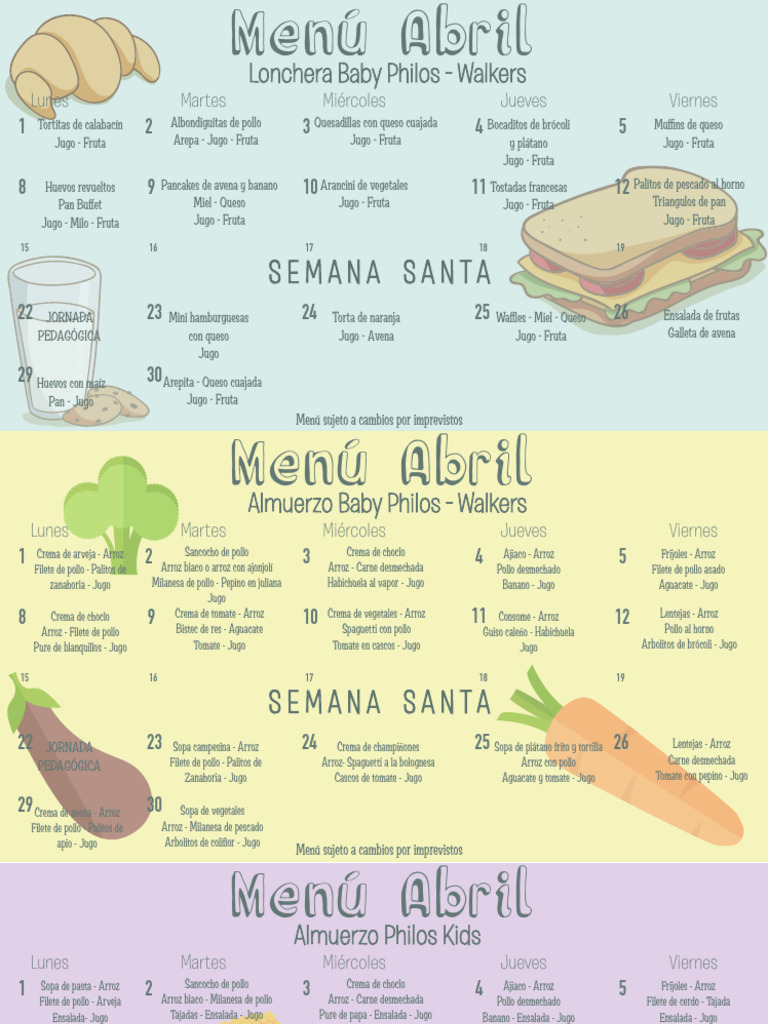 Menú Abril
Lonchera Baby Philos - Walkers
Lunes Martes Miércoles Jueves Viernes
1 Tortitas de calabacín
Jugo - Fruta
2 Albondiguitas de pollo
Arepa - Jugo - Fruta
3 Quesadillas con queso cuajada
Jugo - Fruta
4 Bocaditos de brócoli
y plátano
Jugo - Fruta
5 Muffins de queso
Jugo - Fruta
8 Huevos revueltos
Pan Buffet
Jugo - Milo - Fruta
9 Pancakes de avena y banano
Miel - Queso
Jugo - Fruta
10 Arancini de vegetales
Jugo - Fruta
11 Tostadas francesas
Jugo - Fruta
12 Palitos de pescado al horno
Triangulos de pan
Jugo - Fruta
15 16 17 18 19
SEMANA SANTA
22 JORNADA
PEDAGÓGICA
23 Mini hamburguesas
con queso
Jugo
24 Torta de naranja
Jugo - Avena
25 Waffles - Miel - Queso
Jugo - Fruta
26 Ensalada de frutas
Galleta de avena
29 Huevos con maíz
Pan - Jugo
30 Arepita - Queso cuajada
Jugo - Fruta
Menú sujeto a cambios por imprevistos
Menú Abril
Almuerzo Baby Philos - Walkers
Lunes Martes Miércoles Jueves Viernes
1 Crema de arveja - Arroz
Filete de pollo - Palitos de
zanahoria - Jugo
2 Sancocho de pollo
Arroz blaco o arroz con ajonjolí
Milanesa de pollo - Pepino en juliana
Jugo
3 Crema de choclo
Arroz - Carne desmechada
Habichuela al vapor - Jugo
4 Ajiaco - Arroz
Pollo desmechado
Banano - Jugo
5 Frijoles - Arroz
Filete de pollo asado
Aguacate - Jugo
8 Crema de choclo
Arroz - Filete de pollo
Pure de blanquillos - Jugo
9 Crema de tomate - Arroz
Bistec de res - Aguacate
Tomate - Jugo
10 Crema de vegetales - Arroz
Spaguetti con pollo
Tomate en cascos - Jugo
11 Consome - Arroz
Guiso caleño - Habichuela
Jugo
12 Lentejas - Arroz
Pollo al horno
Arbolitos de brócoli - Jugo
15 16 17 18 19
SEMANA SANTA
22 JORNADA
PEDAGÓGICA
23 Sopa campesina - Arroz
Filete de pollo - Palitos de
Zanahoria - Jugo
24 Crema de champiñones
Arroz- Spaguetti a la bolognesa
Cascos de tomate - Jugo
25 Sopa de plátano frito y tortilla
Arroz con pollo
Aguacate y tomate - Jugo
26 Lentejas - Arroz
Carne desmechada
Tomate con pepino - Jugo
29 Crema de avena - Arroz
Filete de pollo - Palitos de
apio - Jugo
30 Sopa de vegetales
Arroz - Milanesa de pescado
Arbolitos de coliflor - Jugo
Menú sujeto a cambios por imprevistos
Menú Abril
Almuerzo Philos Kids
Lunes Martes Miércoles Jueves Viernes
1 Sopa de pasta - Arroz
Filete de pollo - Arveja
Ensalada- Jugo
2 Sancocho de pollo
Arroz blaco - Milanesa de pollo
Tajadas - Ensalada - Jugo
3 Crema de choclo
Arroz - Carne desmechada
Pure de papa - Ensalada - Jugo
4 Ajiaco - Arroz
Pollo desmechado
Banano - Ensalada - Jugo
5 Frijoles - Arroz
Filete de cerdo - Tajada
Ensalada - Jugo